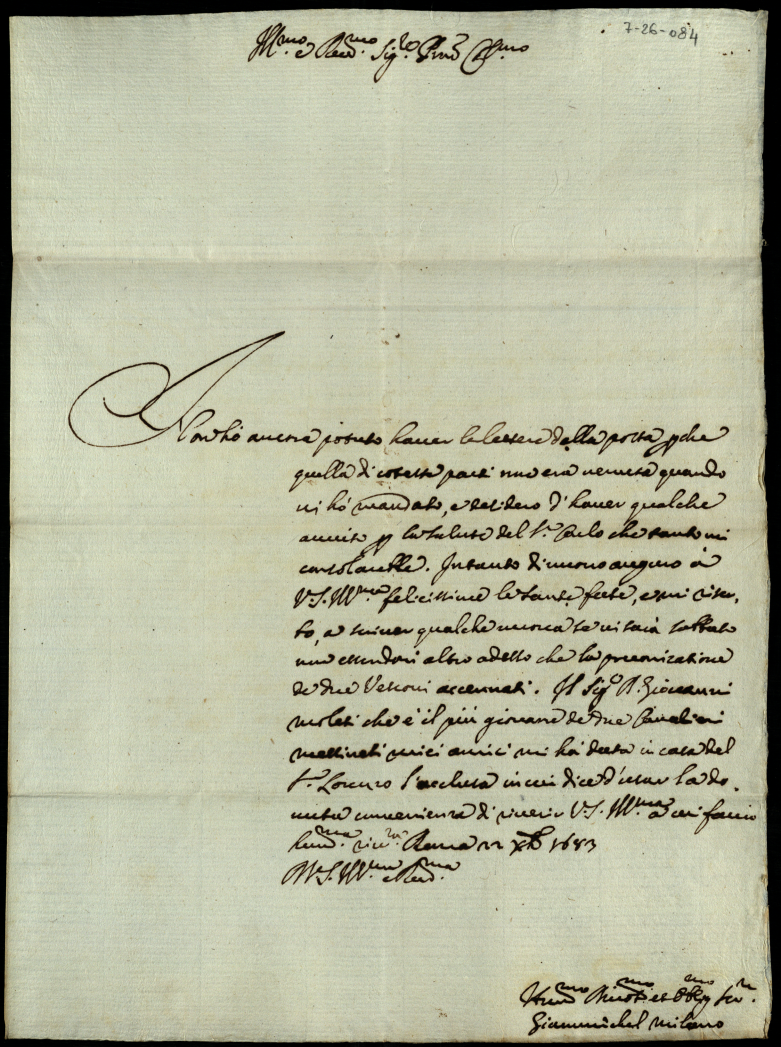 7-26-084
Ill.mo e Rev.mo Sig.re Pron Col.mo
Non hò ancora potuto hauer le lettere della posta p che
quella di coteste parti non era venuta quando
vi hò mandato, e desidero d'hauer qualche
auuiso p la salute del S.r Carlo che tanto mi
consolarebbe. Intanto di nuouo auguro à
V.S. Ill.ma felicissime le sante feste, e mi riser,
bo, a scriuer qualche nuoua se vi sarà sabbato
non essendoui altro adesso che la preconizatione
de due Vescoui accennati. Il Sig.r D. Giovanni
moleti che è il più giouane de due Caualieri
messinesi miei amici mi hà data in casa del
S.r Lorenzo l'acclusa in cui dice d'usar la do,
uuta conuenienza di riuerir V.S. Ill.ma à cui faccio
hum.ma riu.za Roma 22 Xbre 1683
Di V.S. Ill.ma e Reu.ma
Hum.mo Diuot.mo et Obblig.mo Ser.re
Giammichel Milano